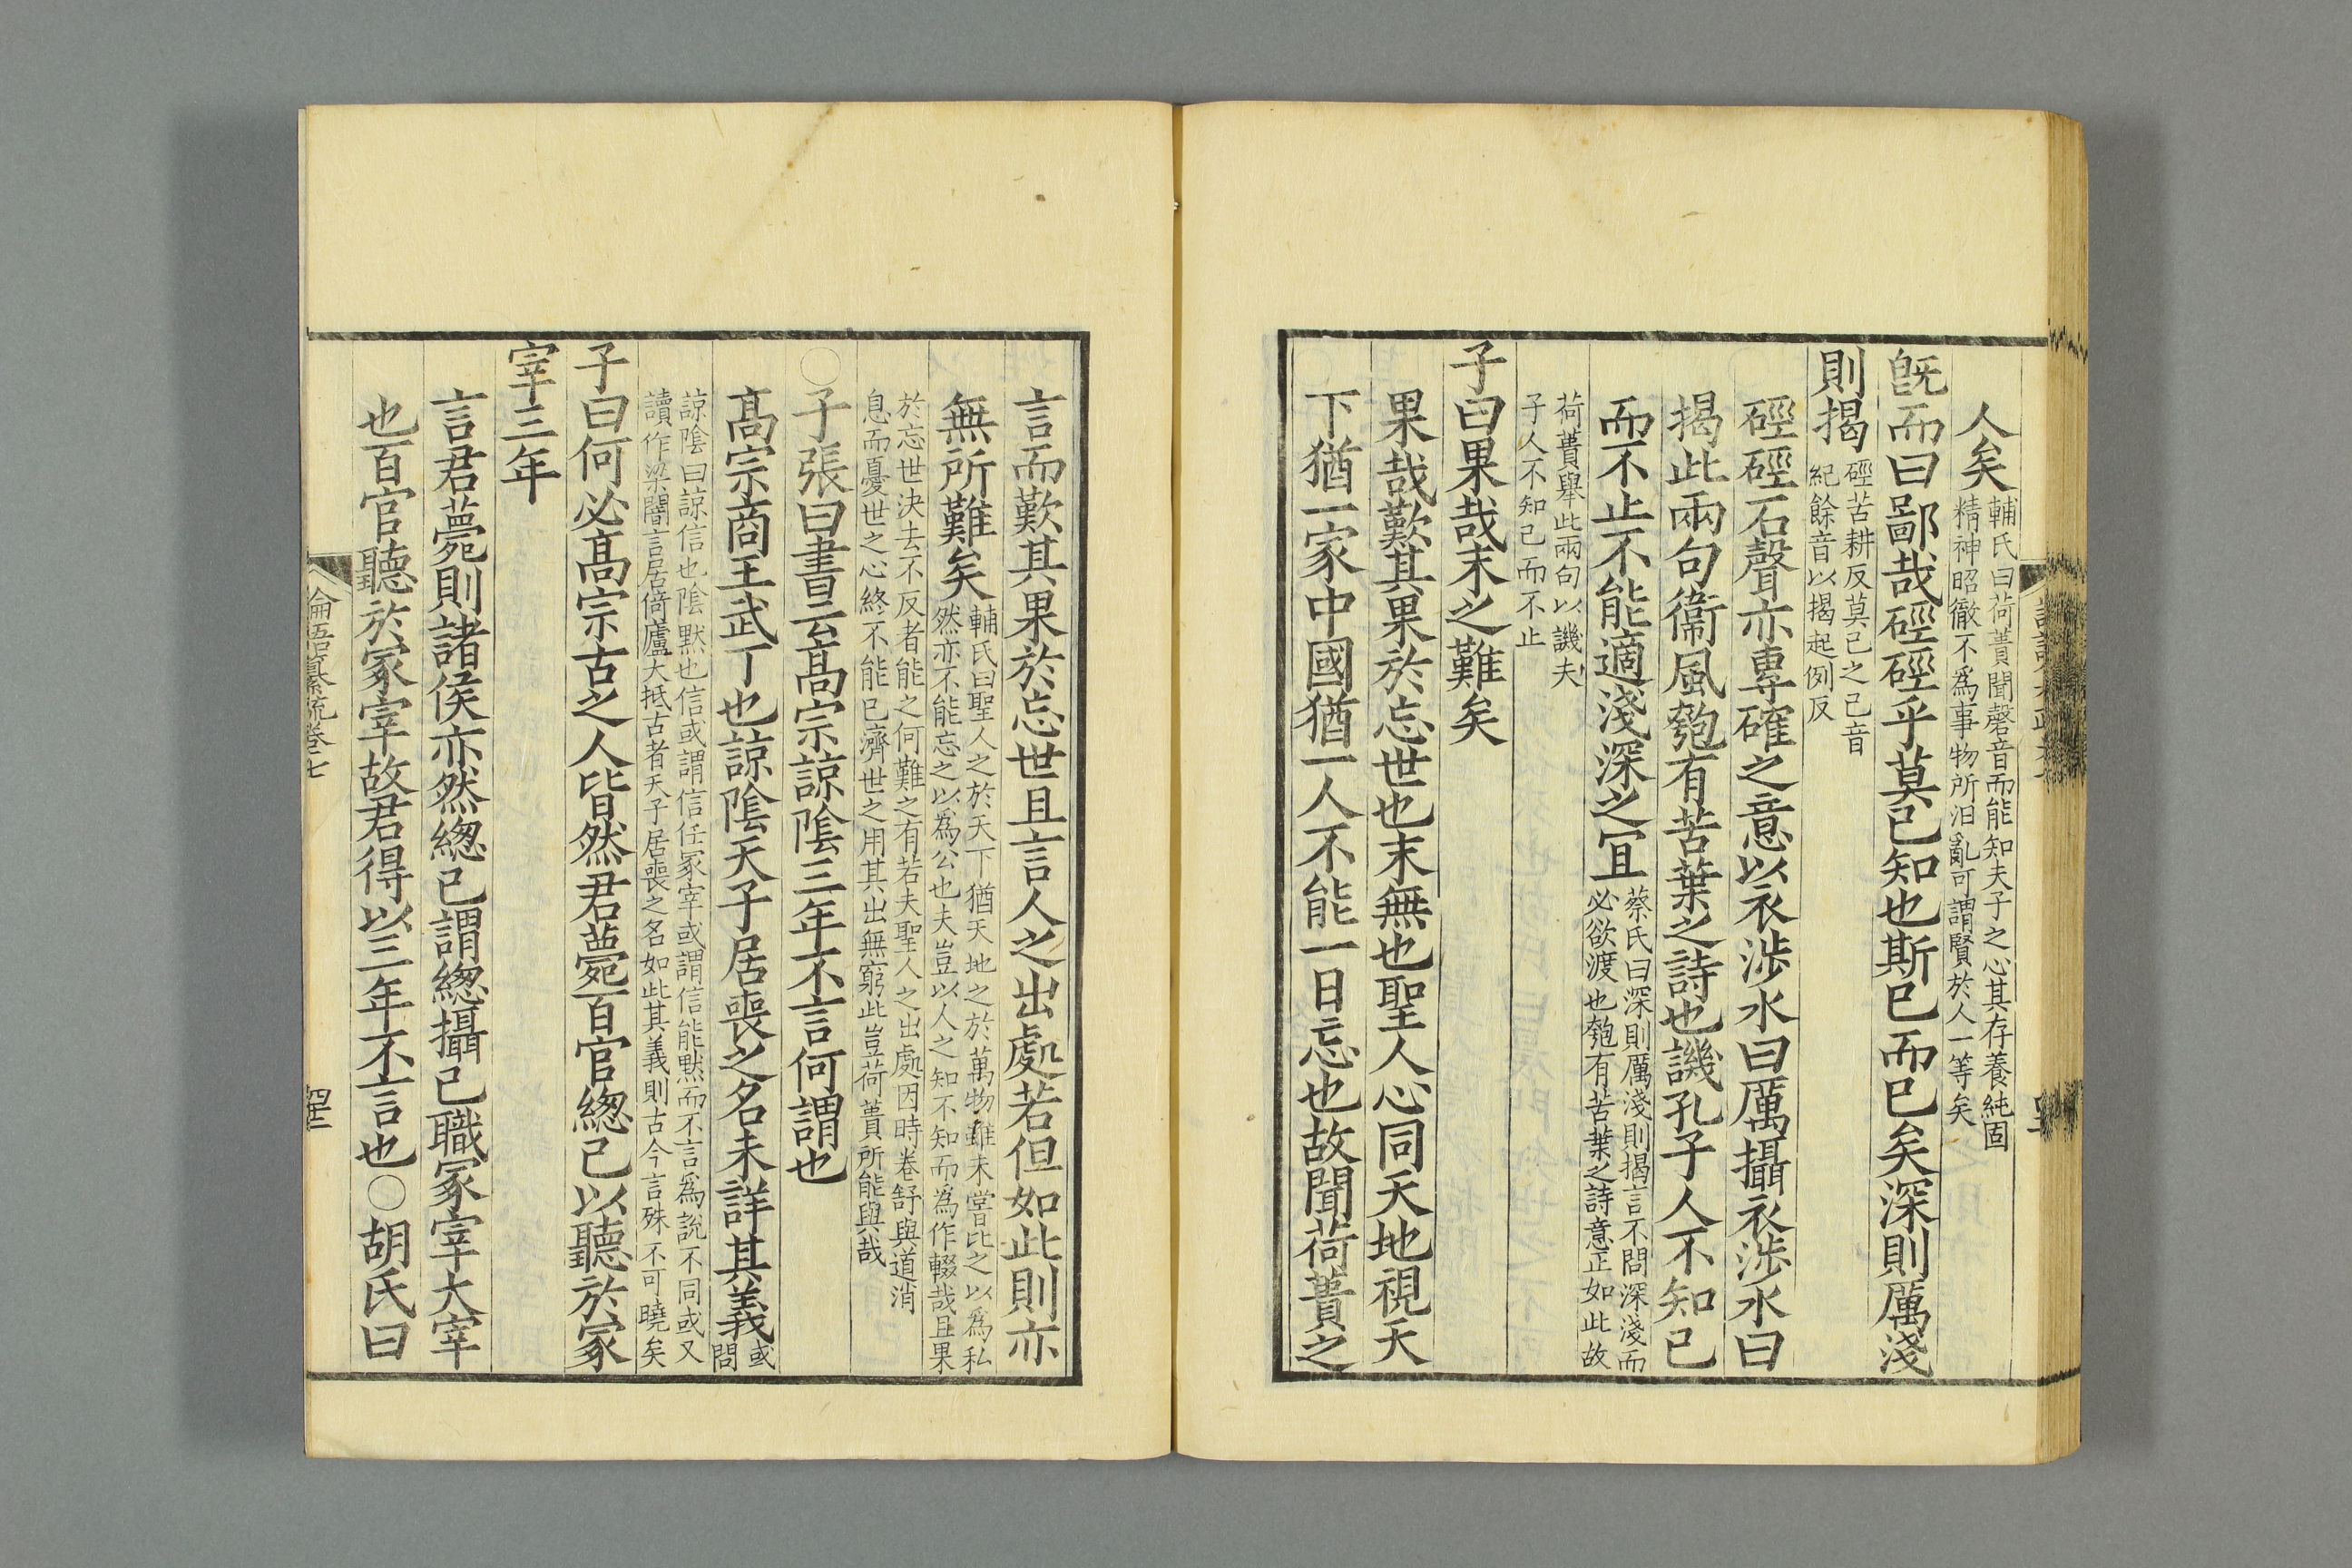 人矣輔氏曰荷蕢聞磬音而能知夫子之心其存養純固
精神昭徹不爲事物所汩亂可謂賢於人一等矣
旣而曰鄙哉硜硜乎莫己知也斯已而已矣深則厲淺
則揭硜苦耕反莫己之己音
紀餘音以揭起例反
硜硜石聲亦專確之意以衣涉水曰厲攝衣涉水曰
揭此兩句衞風匏有苦葉之詩也譏孔子人不知己
而不止不能適淺深之宜蔡氏曰深則厲淺則揭言不問深淺而
必欲渡也匏有苦葉之詩意正如此故
荷蕢舉此兩句以譏夫
子人不知己而不止
子曰果哉末之難矣
果哉歎其果於忘世也末無也聖人心同天地視天
下猶一家中國猶一人不能一日忘也故聞荷蕢之
言而歎其果於忘世且言人之出處若但如此則亦
無所難矣輔氏曰聖人之於天下猶天地之於萬物雖未嘗比之以爲私
然亦不能忘之以爲公也夫豈以人之知不知而爲作輟哉且果
於忘世決去不反者能之何難之有若夫聖人之出處因時卷舒與道消
息而憂世之心終不能已濟世之用其出無窮此豈荷蕢所能與哉
○子張曰書云高宗諒陰三年不言何謂也
高宗商王武丁也諒陰天子居喪之名未詳其義或
問
諒陰曰諒信也陰默也信或謂信任冢宰或謂信能默而不言爲說不同或又
讀作梁闇言居倚廬大抵古者天子居喪之名如此其義則古今言殊不可曉矣
子曰何必高宗古之人皆然君薨百官總己以聽於冢
宰三年
言君薨則諸侯亦然總己謂總攝己職冢宰大宰
也百官聽於冢宰故君得以三年不言也○胡氏曰
論語纂疏卷七